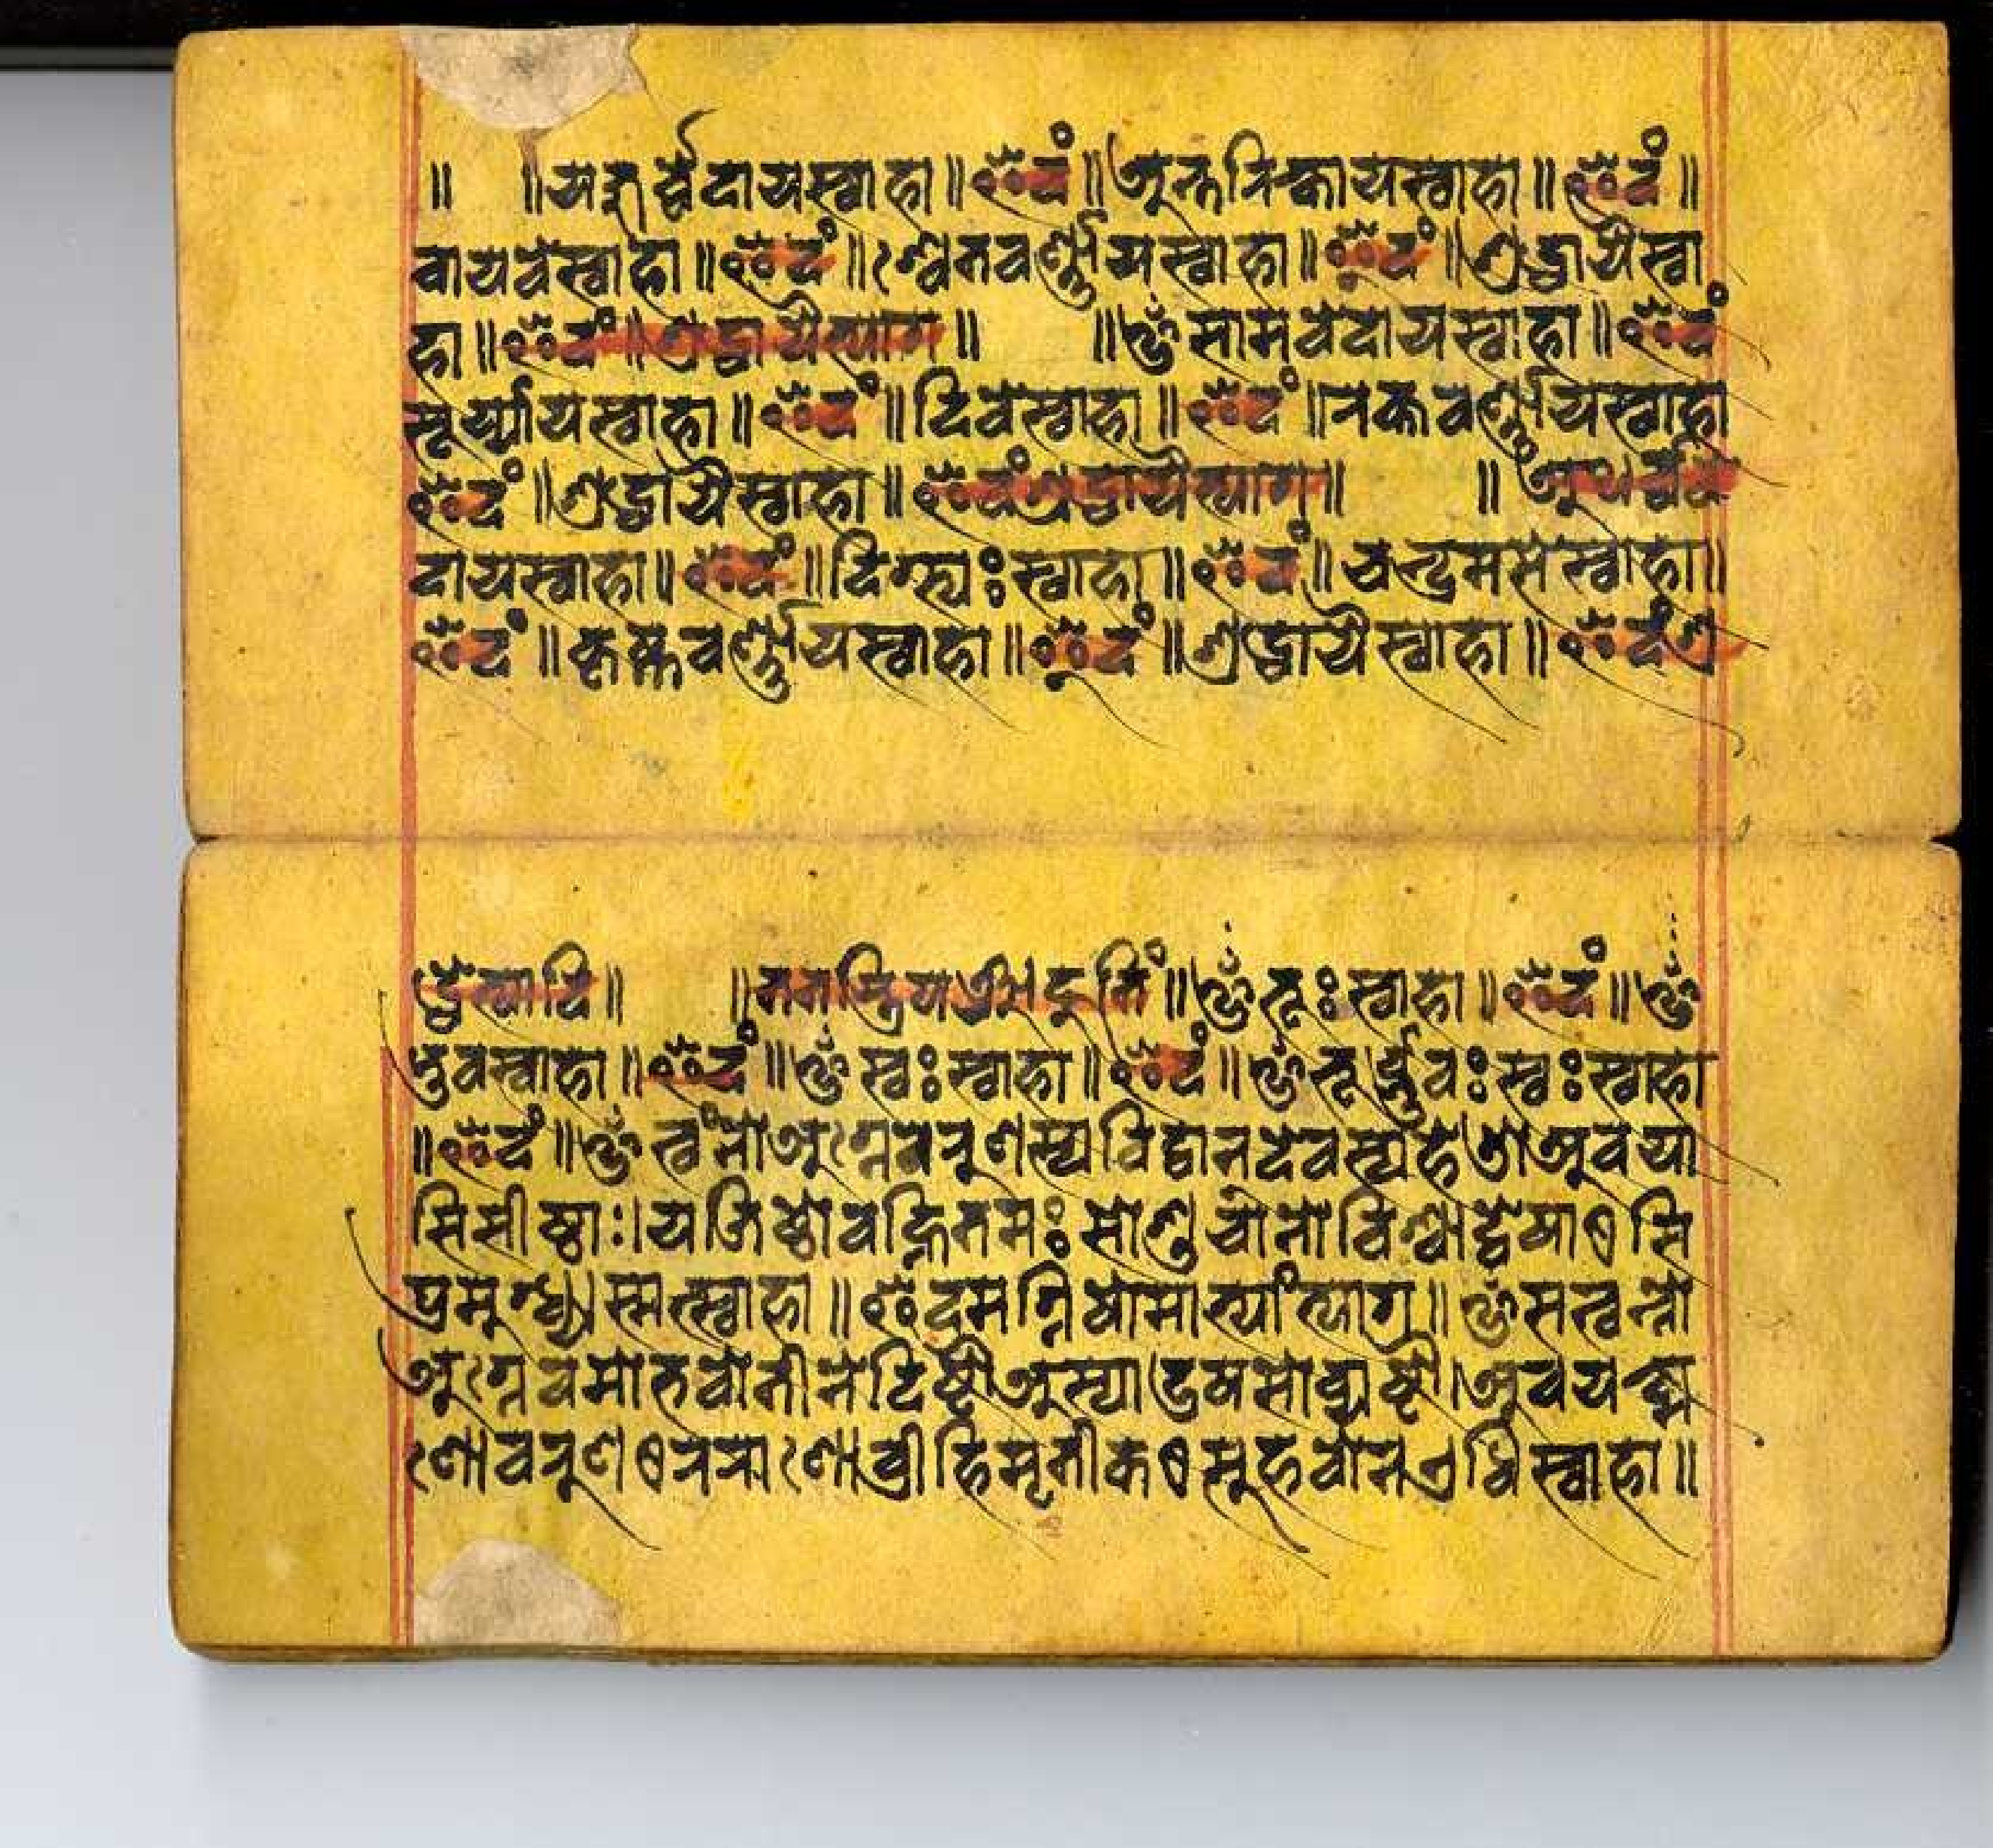 ॥ ॥यजुर्व्वेदायस्वाहा॥इदं॥अन्तरिक्षायस्वाहा॥इदं॥
वायवेस्वाहा॥इदं॥श्वेतवर्ण्णायस्वाहा॥इदं॥श्रद्धायैस्वा
हा॥इदं॥श्रद्धायैत्याग॥ ॥ॐसामवेदायस्वाहा॥इदं
सूर्य्यायस्वाहा॥इदं॥दिवेस्वाहा॥इदं॥रक्तवर्ण्णायस्वाहा
इदं॥श्रद्धायैस्वाहा॥इदंश्रद्धायैत्याग॥ ॥अथर्व्ववे
दायस्वाहा॥इदं॥दिग्भ्यःस्वाहा॥इदं॥चन्द्रमसेस्वाहा॥
इदं॥कृष्णवर्ण्णायस्वाहा॥इदं॥श्रद्धायैस्वाहा॥इदंश्र
द्धेत्यादि॥ ॥ॐभूःस्वाहा॥इदं॥ॐ
भुवस्वाहा॥इदं॥ॐस्वःस्वाहा॥इदं॥ॐभूर्ब्भुवःस्वःस्वाहा
॥इदं॥ॐत्वंनोअग्नेवरुणस्यविद्वानदेवस्यहेडोअवया
सिसीष्ठाः।यजिष्ठोवह्नितमःसोशुचोनोविश्वाद्वेषाꣳसि
प्रमुग्ध्यस्मत्स्वाहा॥इदमग्निषोमाभ्यांत्याग॥ॐसत्वन्नो
अग्नेवमोभवोतीनेदिष्ठौअस्याउषसोव्युष्टौ।अवयक्ष्व
णोवरुणꣳरराणोव्रीहिमृतीकꣳसुहवोनएधिस्वाहा॥